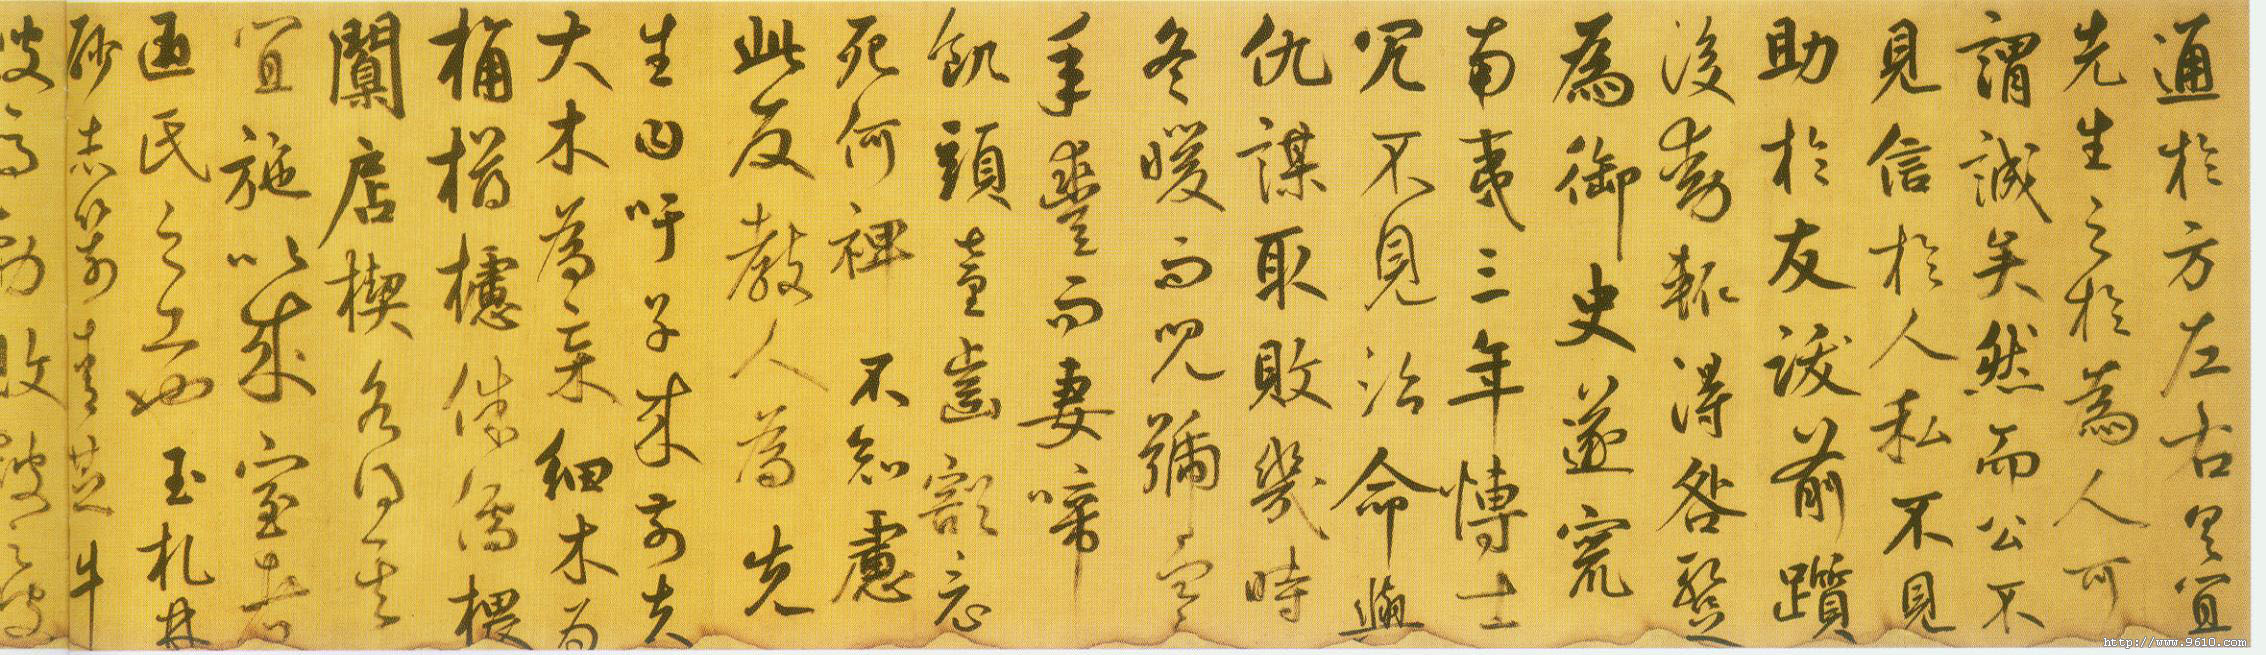 通於方左右具宜
先生之於為人可
謂誠矣然而公不
見信於人私不見
助於友跋前躓
後動輒得咎暫
為御史遂竄
南夷三年博士
冗不見治命與
仇謀取敗幾時
冬暖而兒號寒
年豐而妻啼
飢頭童齒豁竟
死何裨不知慮
此反教人為先
生曰吁子來前夫
大木為杗細木為
桷欂櫨侏儒椳
闑店楔各得其
宜施以成室者
匠氏之工也玉札丹
砂赤箭青芝牛
溲馬勃敗鼓之皮
http://www.9610.com